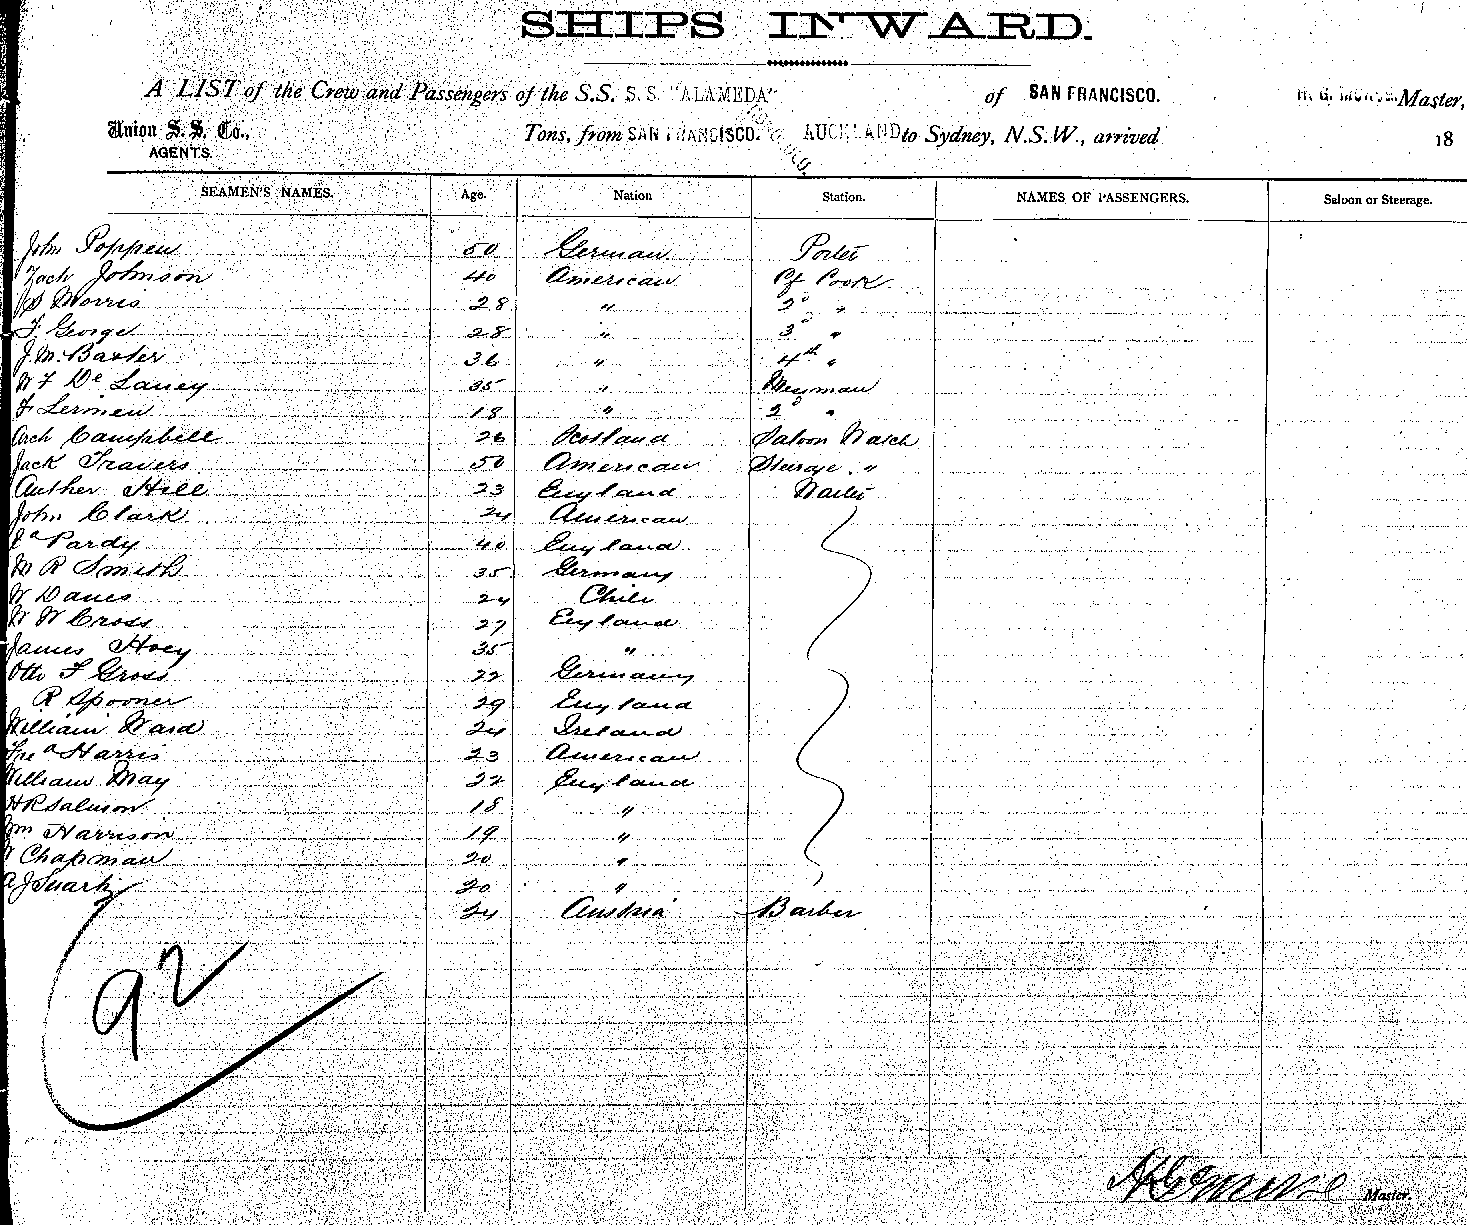 SHIPS INWARD.
A LIST of the Crew and Passengers of the S.S. S.S. "ALAMEDA" of SAN FRANCISCO. Master,
Union S. S. Co., Tons, from SAN FRANCISCO. AUCKLAND to Sydney, N.S.W., arrived 18
AGENTS.
SEAMEN'S NAMES. Age. Nation Station. NAMES OF PASSENGERS. Saloon or Steerage.
John Poppen 50 German Porter
Zach Johnson 40 American Cf Cook
Morris 28 " 2" "
F George 28 " 3" "
J. M. Baxter 36 " 4th "
W F De Laney 35 " Messman
F Lermen 18 " 2" "
Arch Campbell 26 Scotland Saloon Watch
Jack Travers 50 American Steerage "
Auther Hill 23 England Waiter
John Clark 24 American
Jas Pardy 40 England
M R Smith 35 Germany
W Danes 24 Chili
W W Cross 27 England
James Hoey 35 "
Otto F Gross 22 Germany
R Spooner 29 England
William Ward 24 Ireland
Harris 23 American
William May 22 England
H R Salmon 18 "
Wm Harrison 19 "
Chapman 20 "
A J 20 "
24 Austria Barber
92
Master.